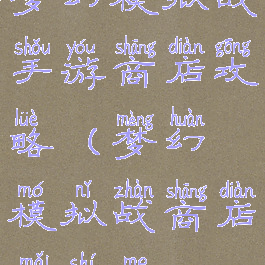 shǒu yóu shāng diàn gōng
手游商店攻
lüè mèng huàn
略（梦幻
mó nǐ zhàn shāng diàn
模拟战商店
mǎi shí me